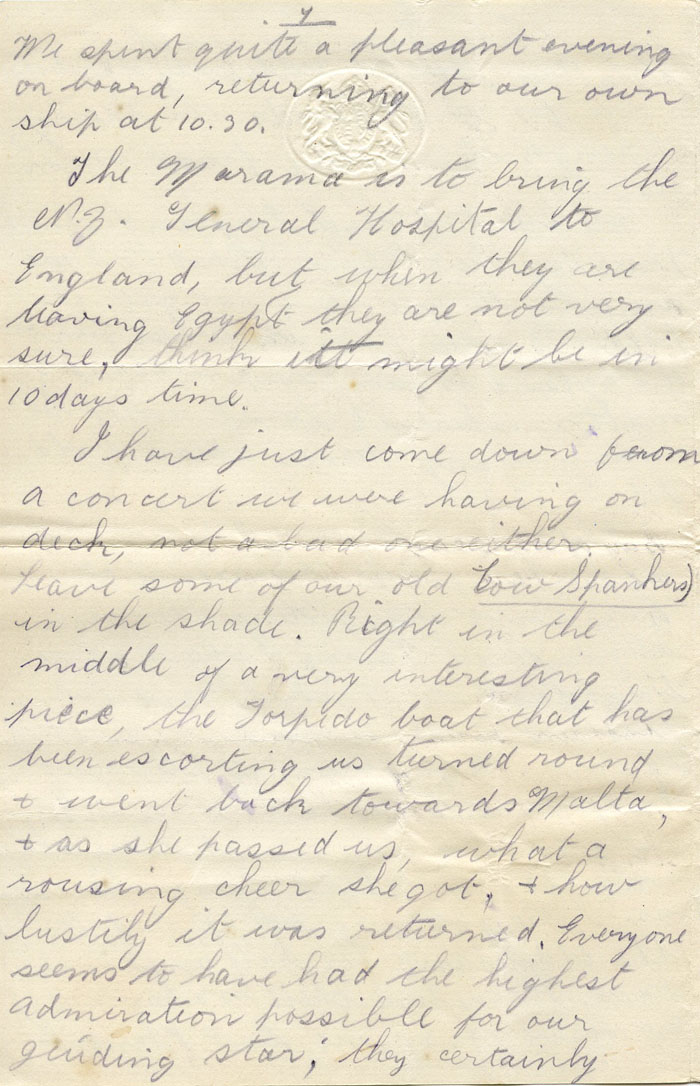 7
We spent quite a pleasant evening
on board, returning to our own
ship at 10.30.
The Marama is to bring the
N.Z. General Hospital to
England, but when they are
leaving Egypt they are not very
sure, think it might be in
10 days time.
I have just come down from
a concert we were having on
deck, not a bad one either.
Leave some of our old Cow Spankers)
in the shade. Right in the
middle of a very interesting
piece, the Torpedo boat that has
been escorting us turned round
+ went back towards Malta,
+ as she passed us, what a
rousing cheer she got, + how
lustily it was returned. Everyone
seems to have had the highest
admiration possible for our
guiding star; they certainly